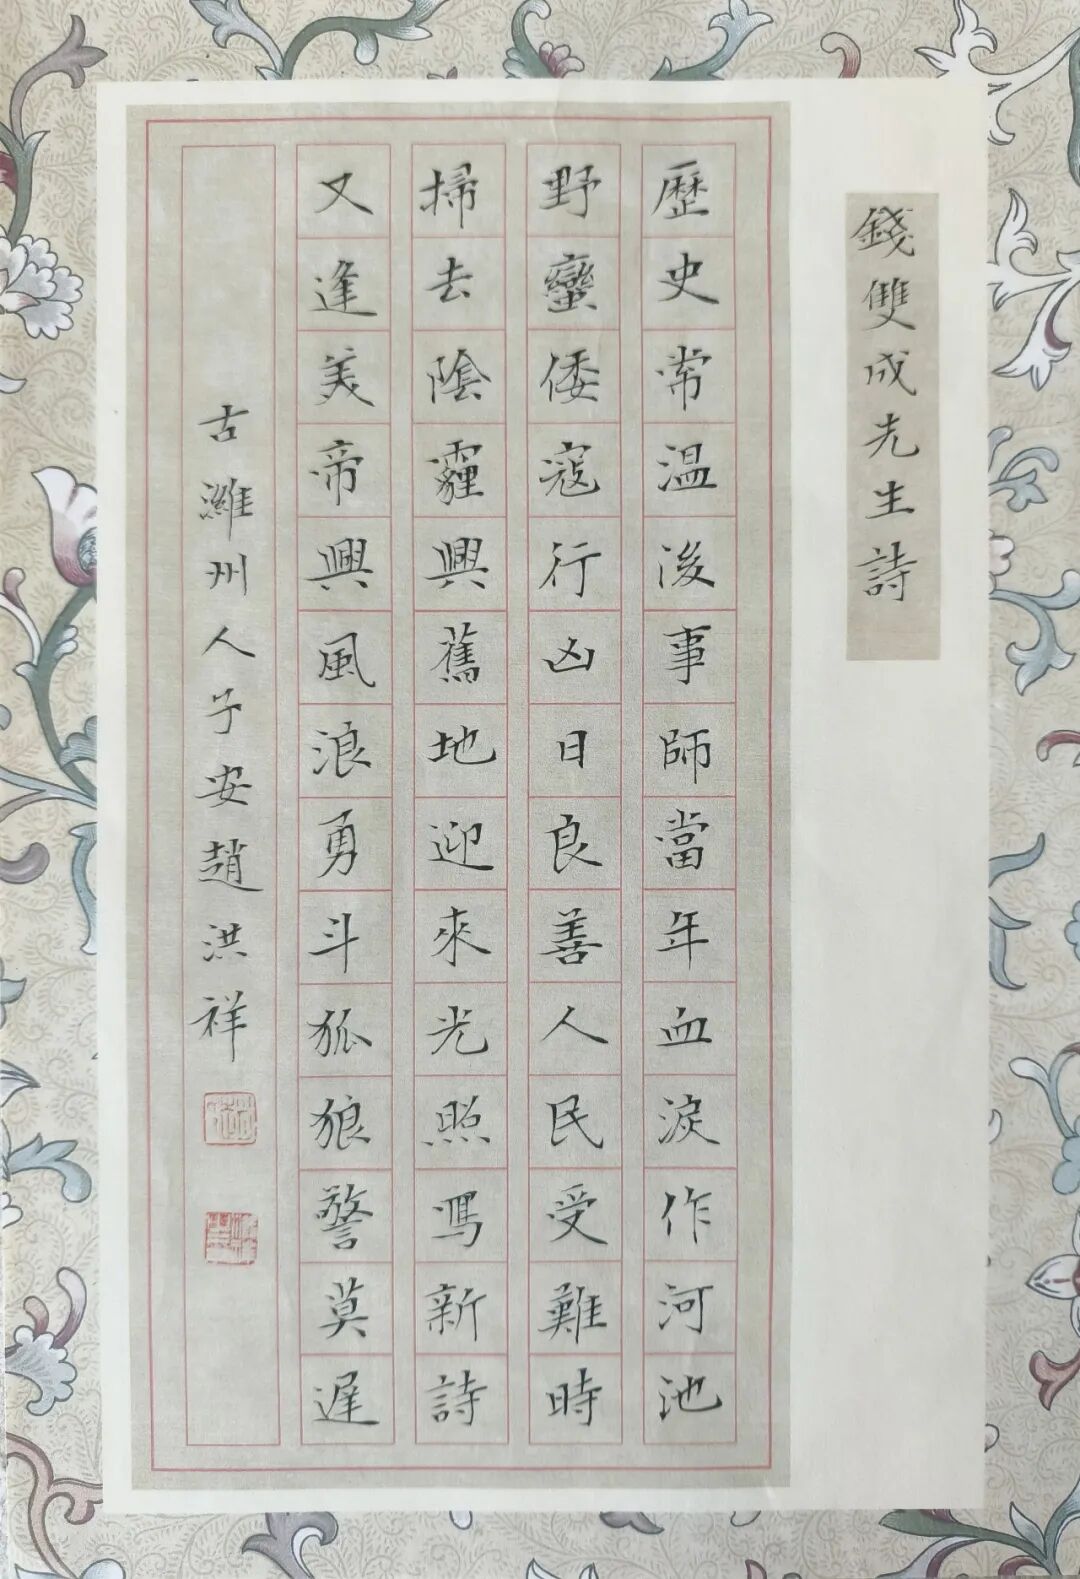 錢雙成先生詩
歷史常温後事師當年血淚作河池
野蠻倭寇行凶日良善人民受難時
掃去陰霾興舊地迎來光照寫新詩
又逢美帝興風浪勇斗狐狼警莫遲
古濰州人子安趙洪祥